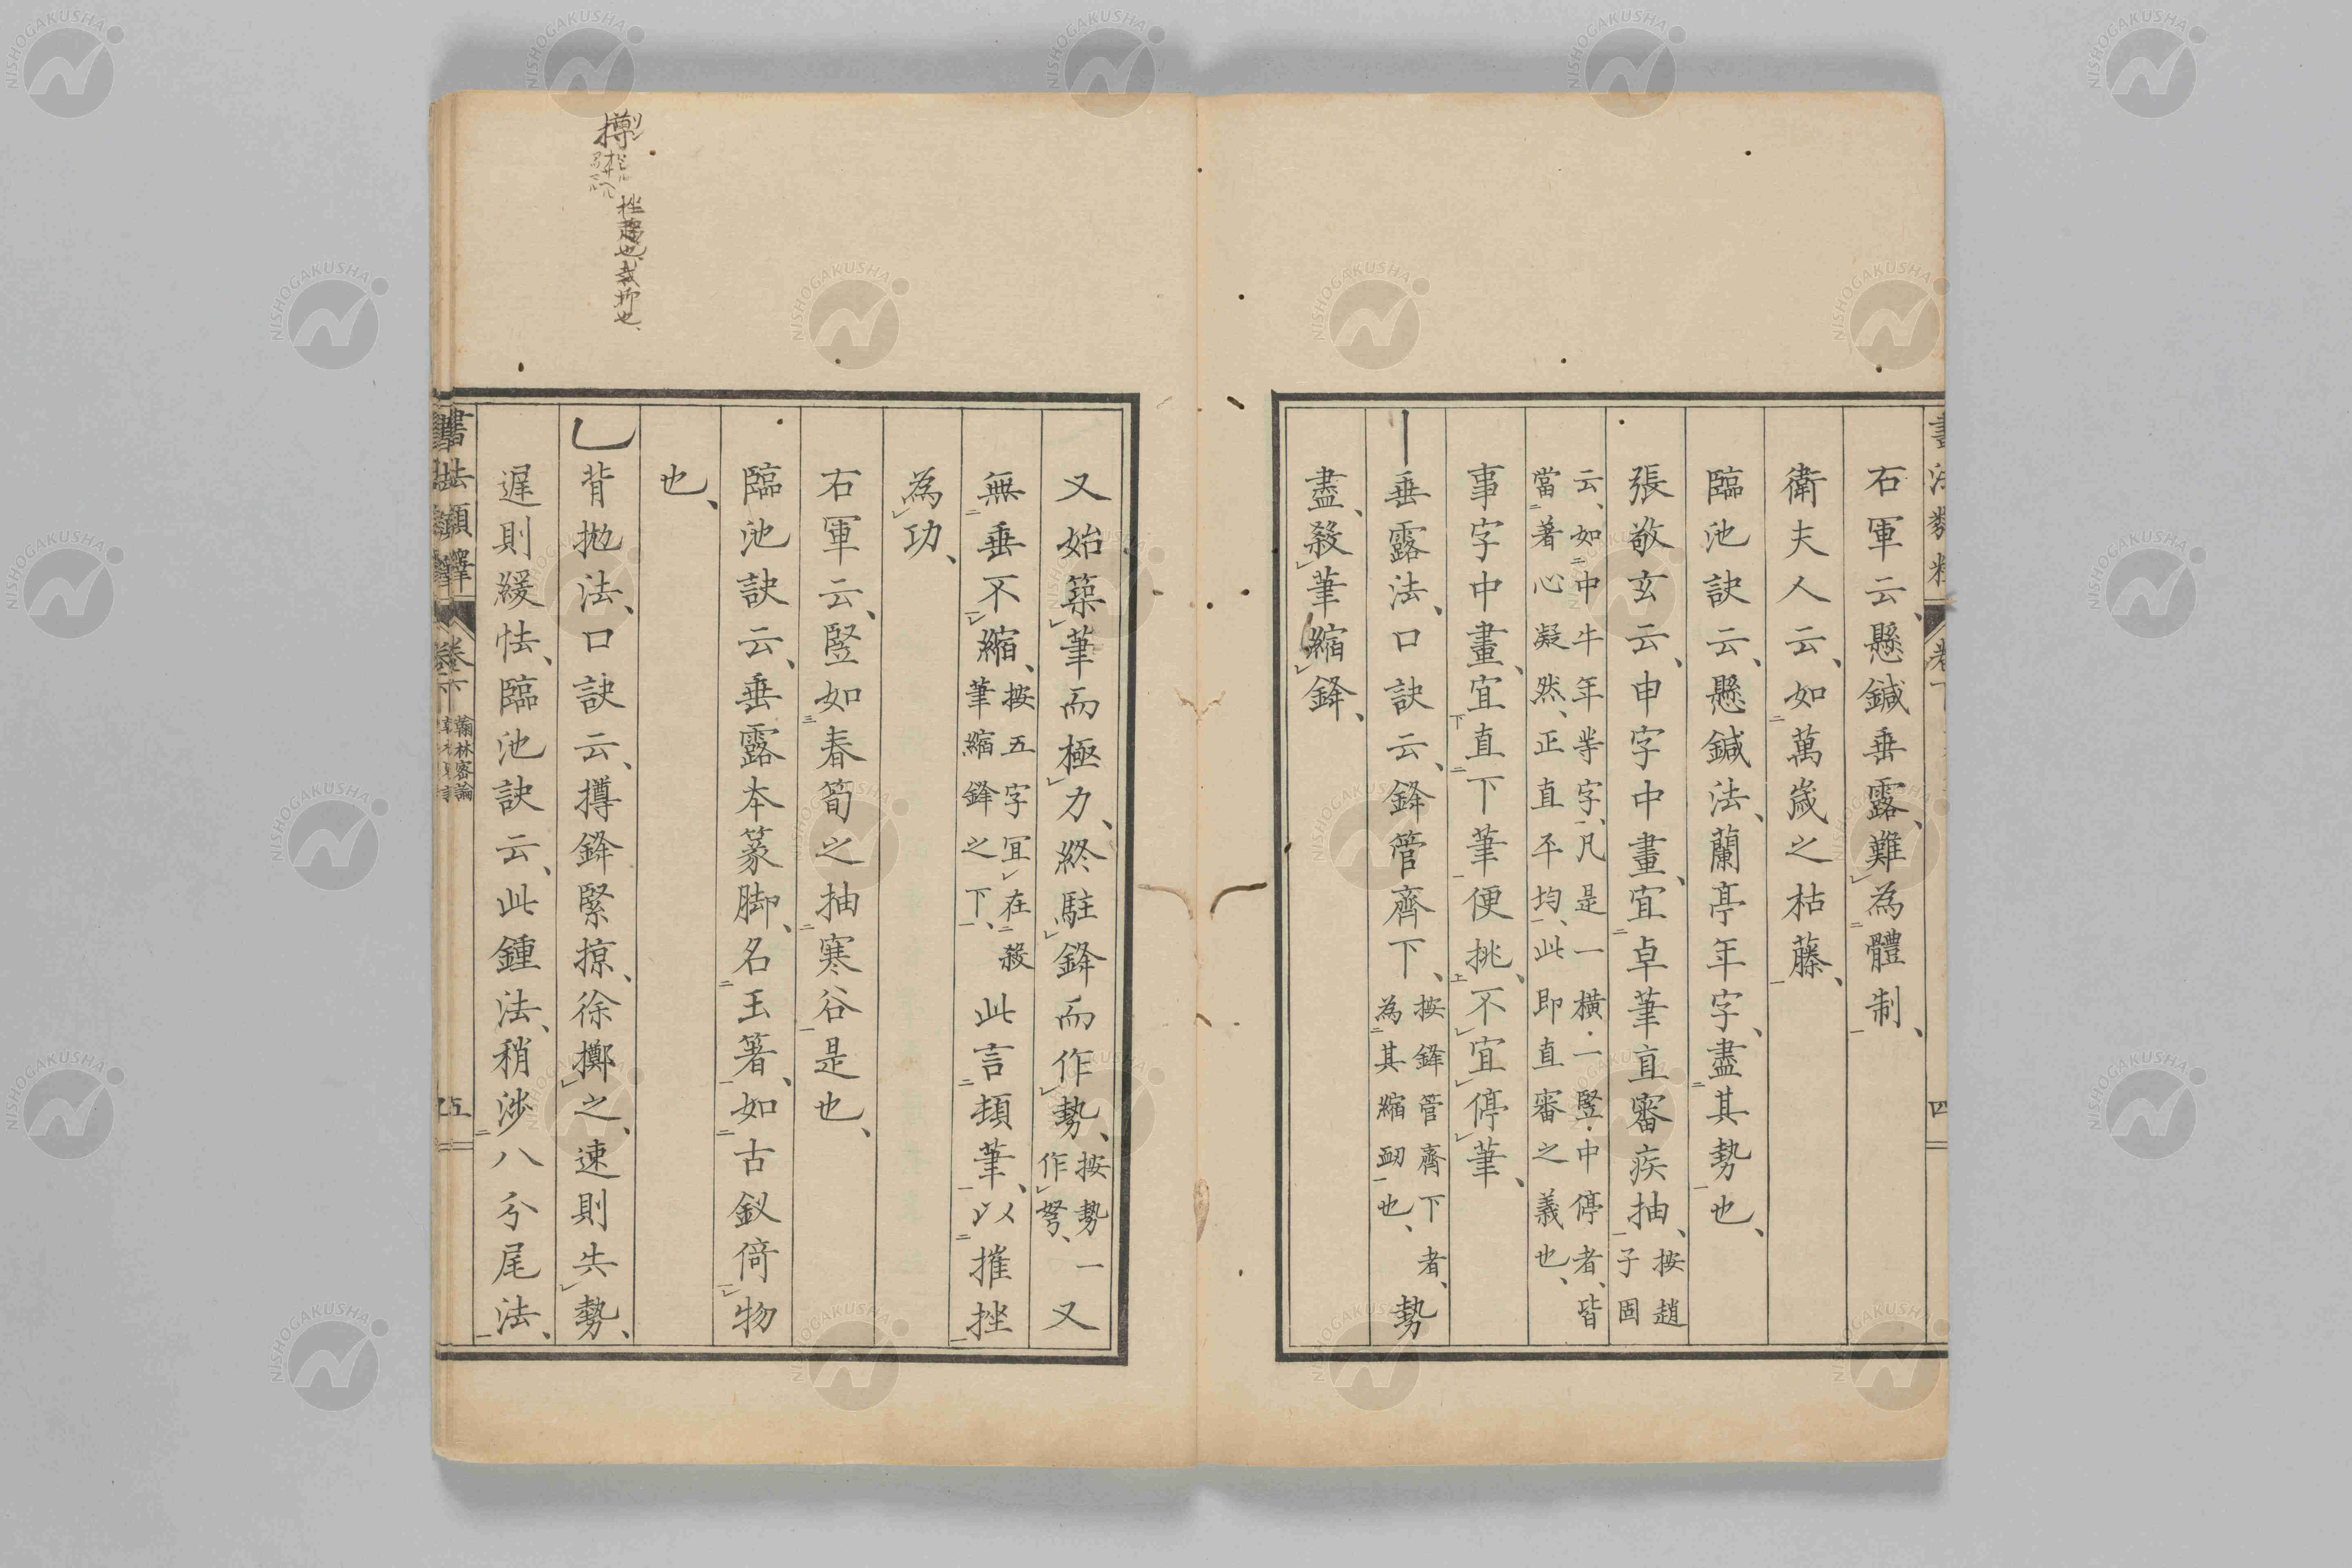 右軍云、懸鍼垂露、難為體制、
衛夫人云、如萬歲之枯藤、
臨池訣云、懸鍼法、蘭亭年字、盡其勢也、
張敬玄云、申字中畫、宜卓筆直審疾抽、按趙子固
云、如中牛年等字、凡是一橫・一竪・中停者、皆
當著心凝然、正直平均、此即直審之義也、
事字中畫、宜直下筆便挑、不宜停筆、
丨垂露法、口訣云、鋒管齊下、按鋒管齊下者、為其縮衄也、勢
盡、殺筆縮鋒、
又始築筆而極力、終駐鋒而作勢、按勢一又作努、
無垂不縮、按五字冝在殺筆縮鋒之下、此言頓筆、以摧挫
為功、
右軍云、竪如春筍之抽寒谷是也、
臨池訣云、垂露本篆脚、名玉箸、如古釵倚物
也、
乚背拋法、口訣云、撙鋒緊掠、徐擲之、速則失勢、
遲則緩怯、臨池訣云、此鍾法、稍涉八分尾法、
書法類釋 卷下 翰林審論 五
撙
挫趨也、或抑也、
NISHOGAKUSHA